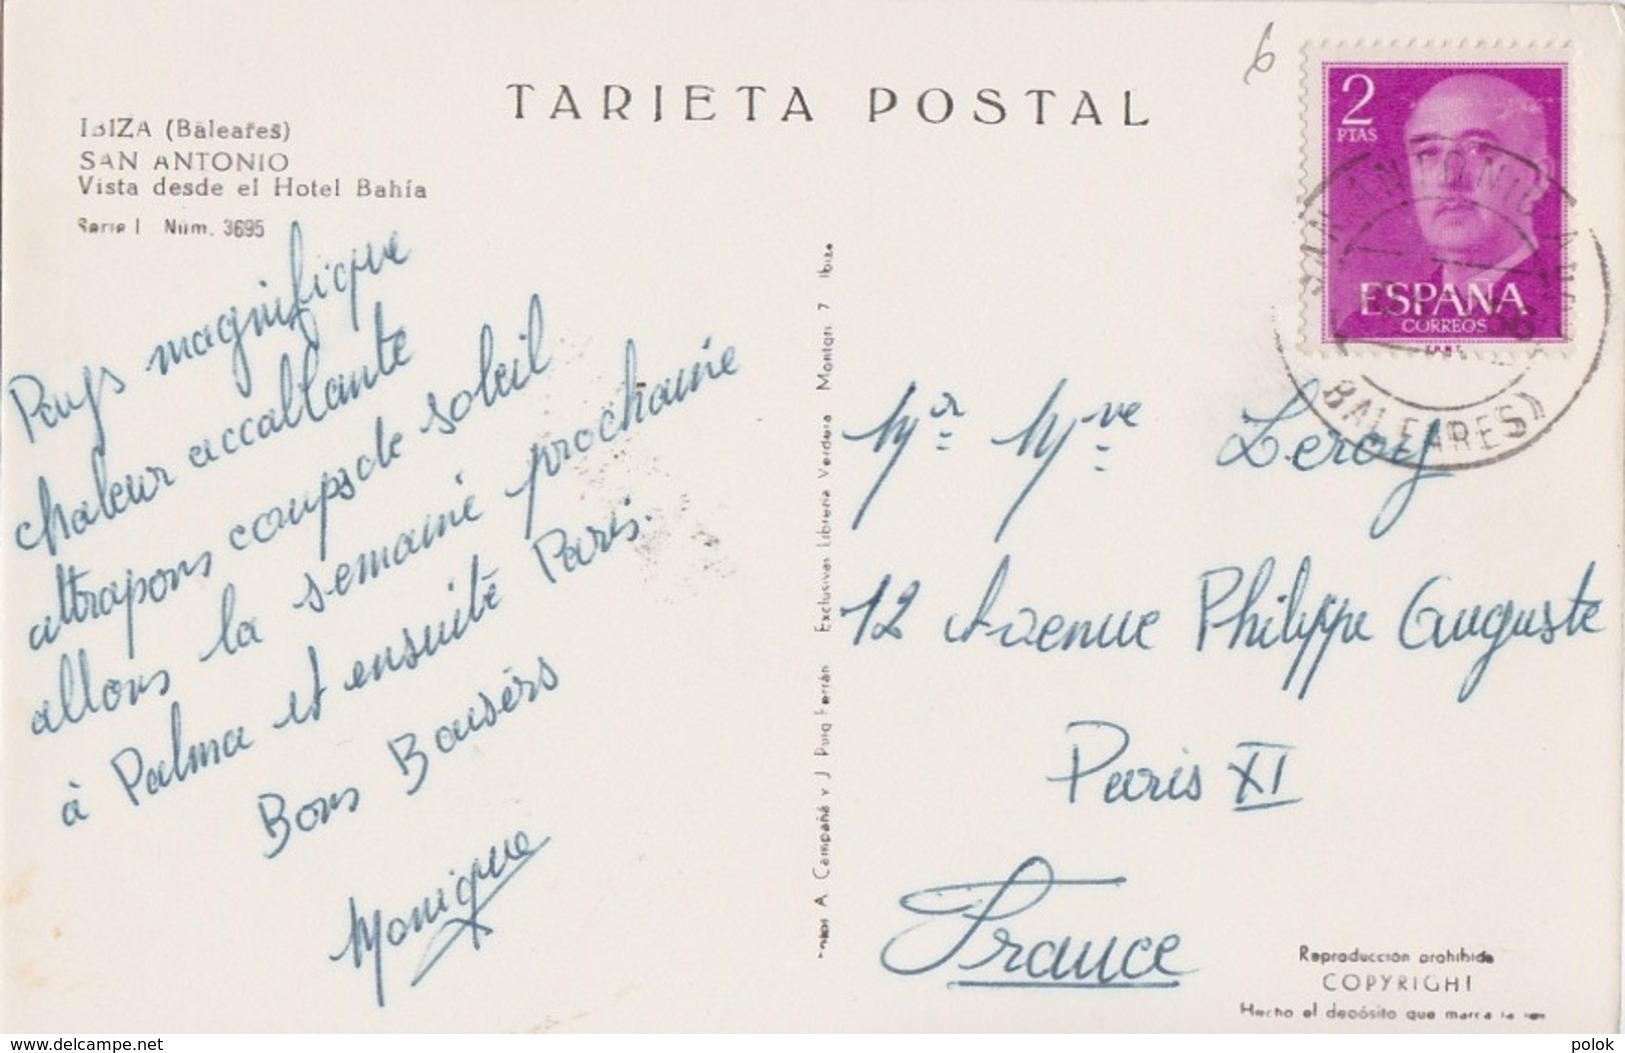 TARJETA POSTAL
6
IBIZA (Baleares)
SAN ANTONIO
Vista desde el Hotel Bahía
Serie I Núm. 3695
Pays magnifique
chaleur accallante
attrapons coups de soleil
allons la semaine prochaine
à Palma et ensuite Paris.
Bons Baisers
Monique
A. Campañá y J. Puig Ferrán Exclusivas Librería Verdera Montan 7 Ibiza
2
PTAS
ESPAÑA
CORREOS
SAN ANTONIO
(BALEARES)
Mr Mme Leroy
12 Avenue Philippe Auguste
Paris XI
France
Reproducción prohibida
COPYRIGHT
Hecho el depósito que marca la ley
www.delcampe.net
polok